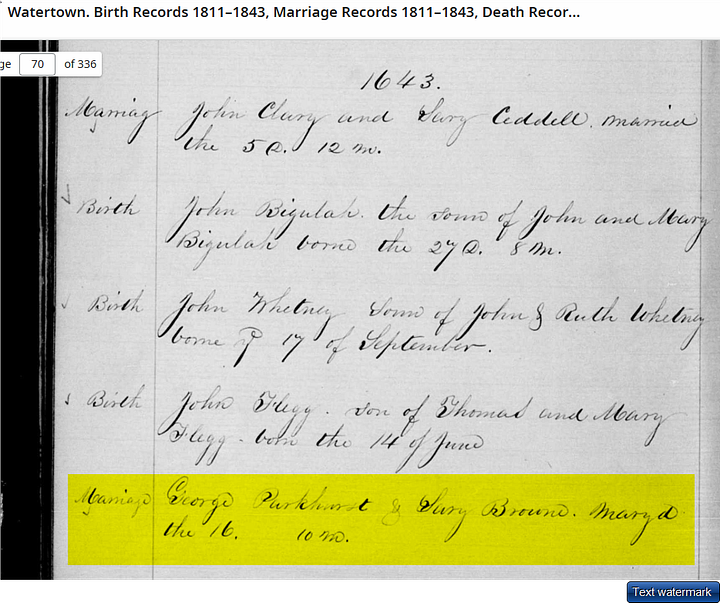 Watertown. Birth Records 1811–1843, Marriage Records 1811–1843, Death Recor...
ge 70 of 336
1643.
Marriag John Clary and Sary Caddell. married
the 5 D. 12 m.
Birth John Bigulah. the sonn of John and Mary
Bigulah borne the 27 D. 8 m.
Birth John Whetney Sonn of John & Ruth Whetney
borne ye 17 of September.
Birth John Flegg. son of Thomas and Mary
Flegg. born the 14 of June
Marriage George Parkhurst & Sary Browne. Maryd
the 16. 10 m.
Text watermark